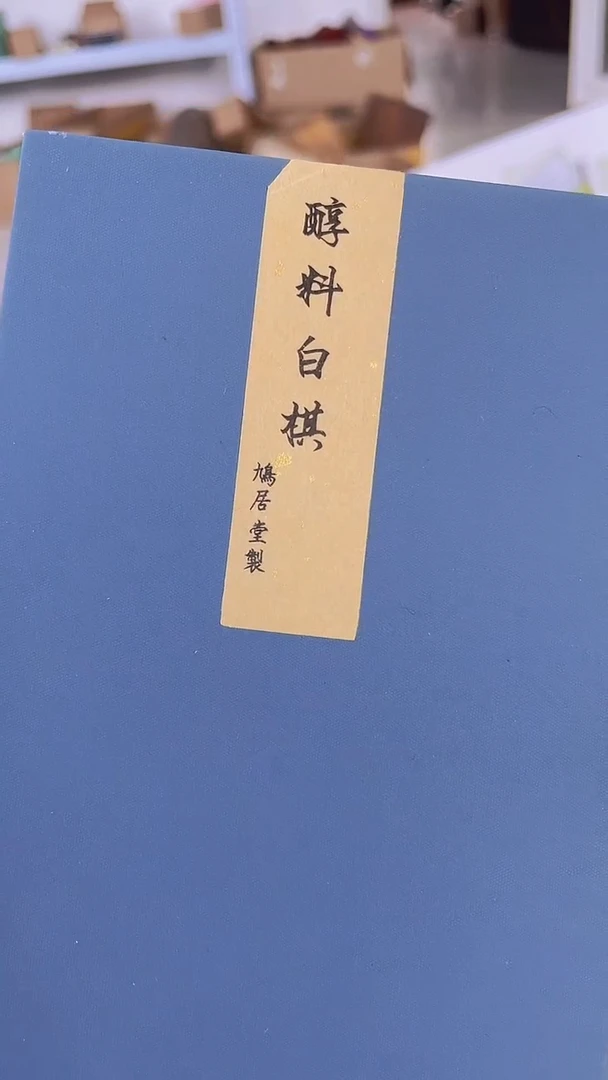 醇料白棋
鳩居堂製